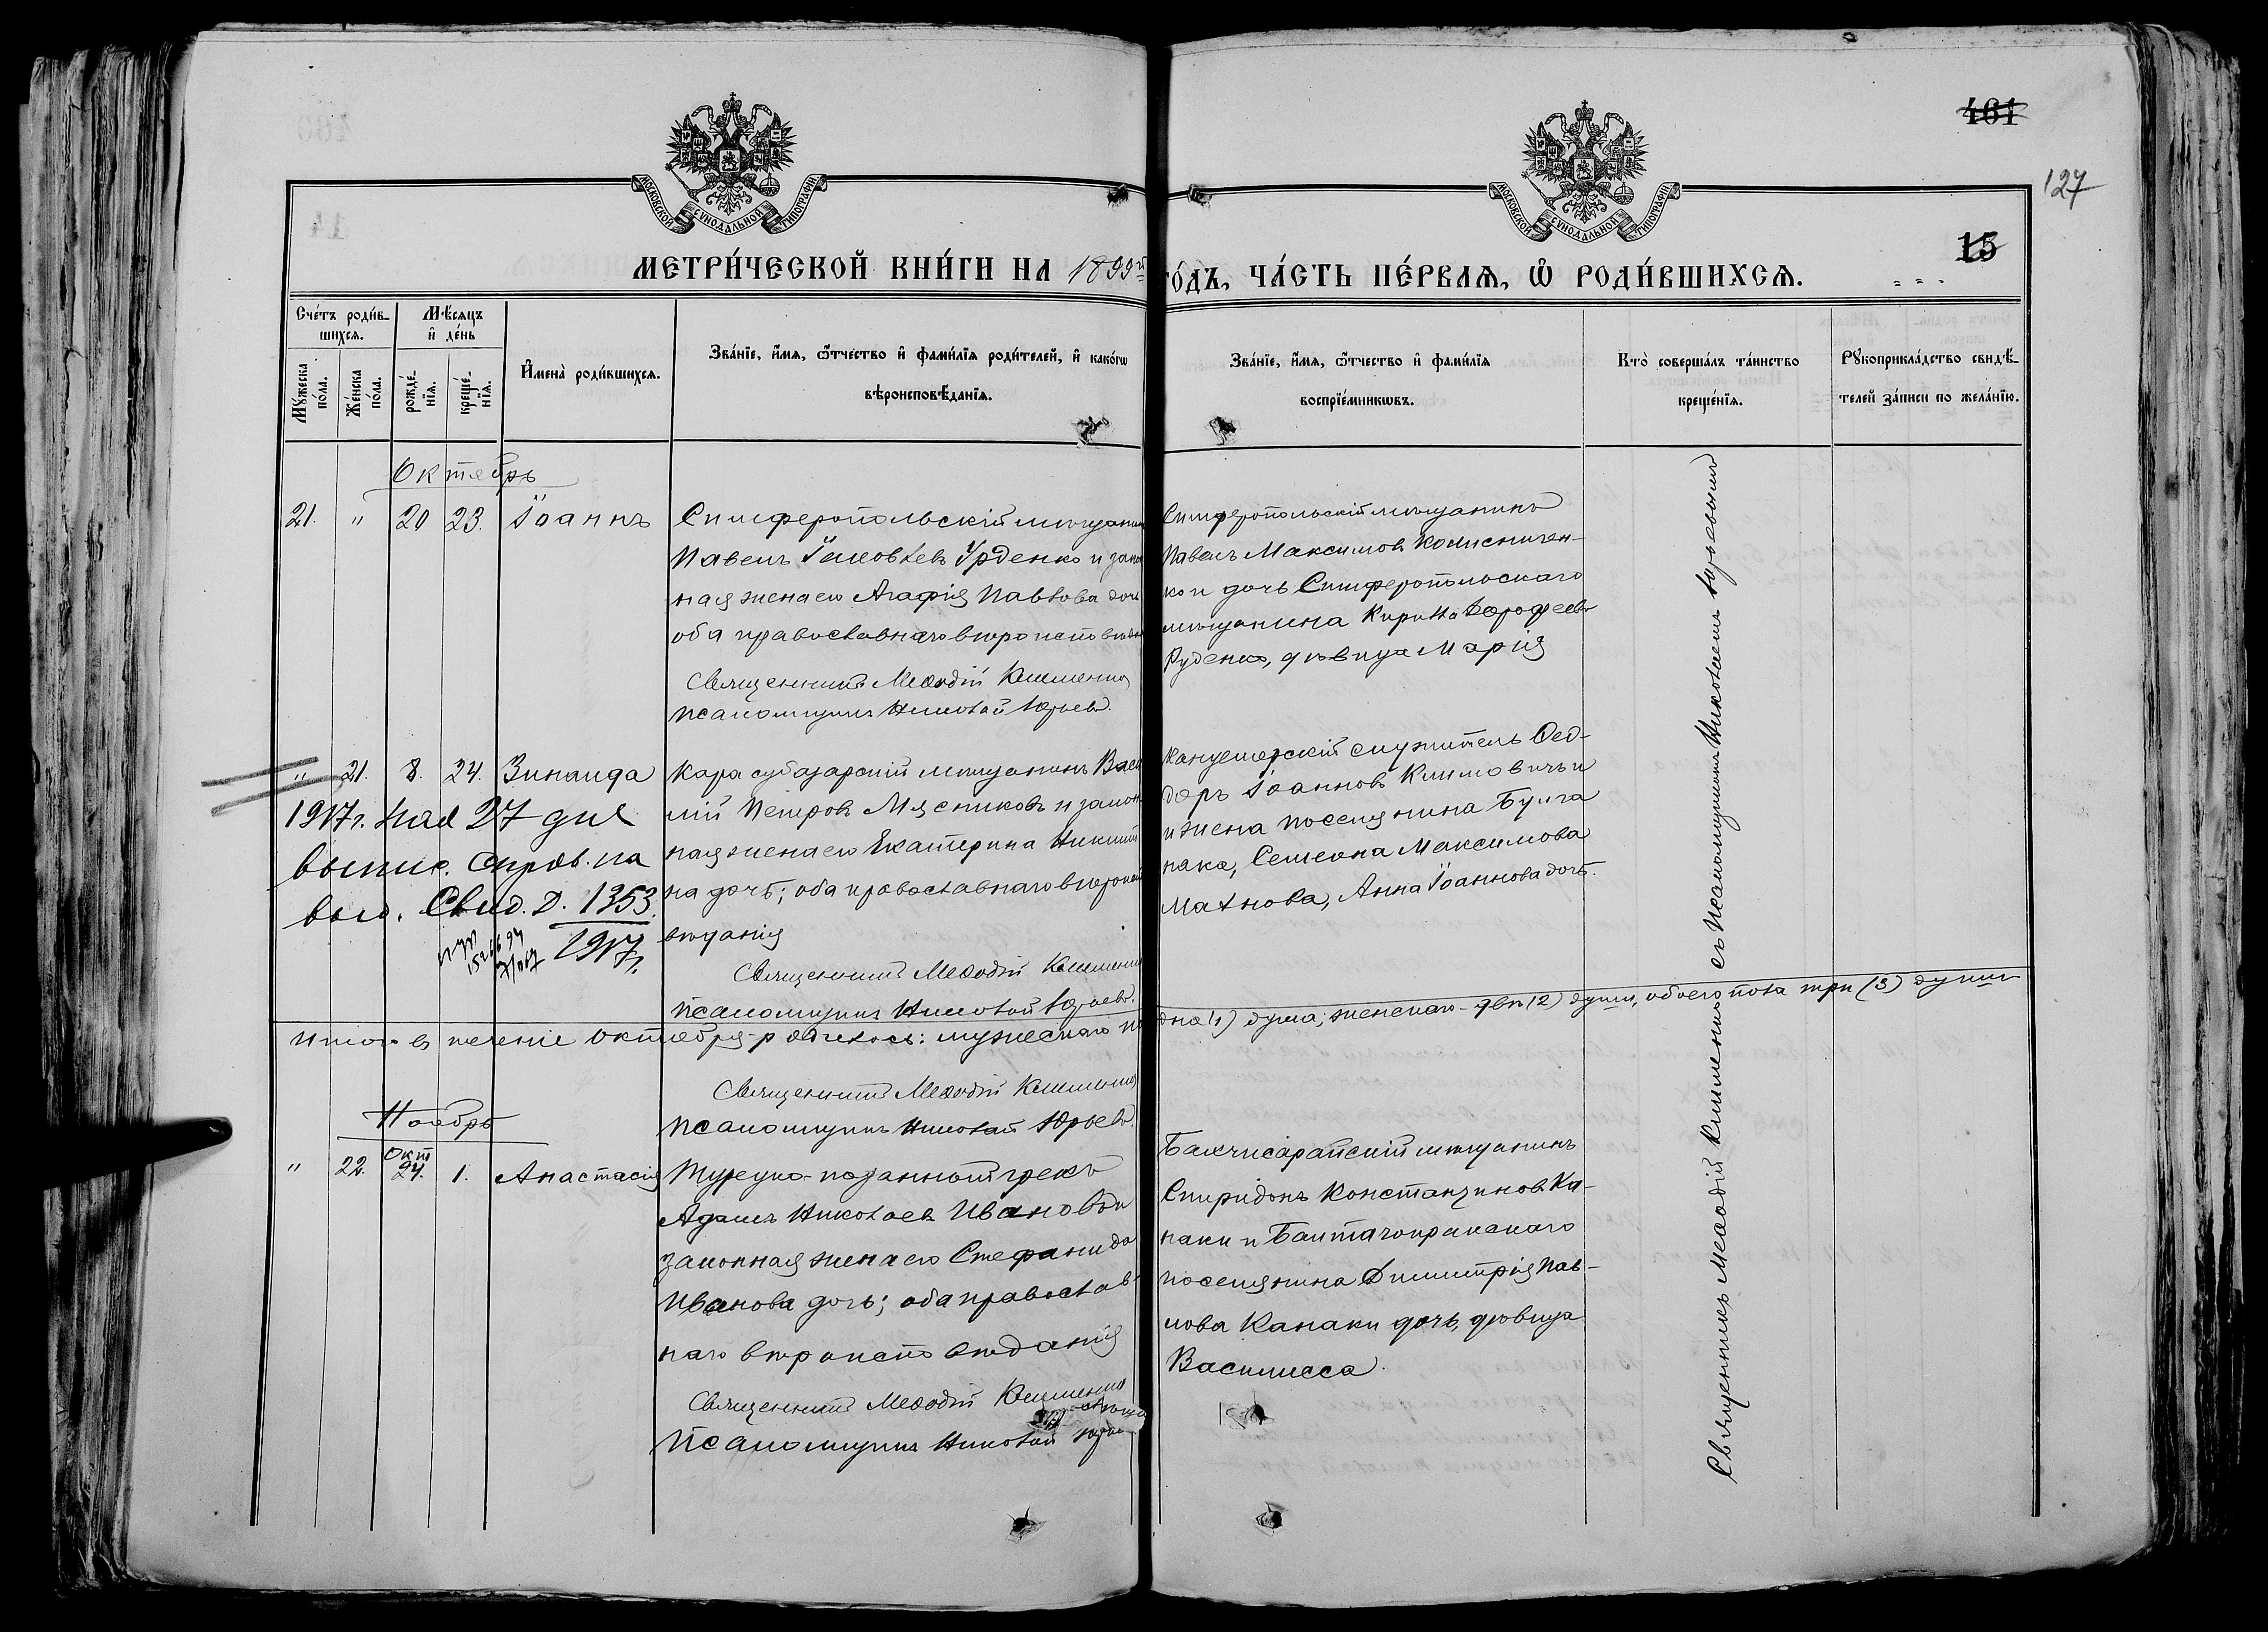 461
127
15
МОСКОВСКОЙ СѴНОДАЛЬНОЙ ТИПОГРАФІИ
МОСКОВСКОЙ СѴНОДАЛЬНОЙ ТИПОГРАФІИ
МЕТРИ́ЧЕСКОЙ КНИ́ГИ НА 1899й ГО́ДЪ, ЧА́СТЬ ПЕ́РВАѦ, Ѡ РОДИ́ВШИХСѦ.
Сче́тъ роди́в-
шихсѧ.
Мѣ́сѧцъ
и҆ де́нь
Мꙋ́жеска
по́ла.
Же́нска
по́ла.
рожде́-
нїѧ.
креще́-
нїѧ.
И҆мена̀ роди́вшихсѧ.
Зва́нїе, и҆́мѧ, ѻ҆́тчество и҆ фами́лїѧ роди́телей, и҆ како́гѡ
вѣроисповѣ́данїѧ.
Зва́нїе, и҆́мѧ, ѻ҆́тчество и҆ фами́лїѧ
воспрїе́мникѡвъ.
Кто̀ соверша́лъ та́инство
креще́нїѧ.
Рꙋкоприкла́дство свидѣ́-
телей за́писи по жела́нїю.
Октябрь
21. " 20 23. Іоаннъ
Симферопольскій мѣщанин
Павелъ Іаковлевъ Урденко и закон
ная жена его Агафія Павлова дочь
оба православнаго вѣроисповѣдан
Священникъ Меѳодій Клименко
Псаломщикъ Николай Юрьевъ.
Симферопольскій мѣщанинъ
Павелъ Максимовъ Колесничен-
ко и дочь Симферопольскаго
мѣщанина Кирилла Дорофеева
Руденко, дѣвица Марія
" 21. 8. 24. Зинаида
Карасубазарскій мѣщанинъ Васи
лій Петровъ Мясниковъ и закон
ная жена его Екатерина Никити
на дочь; оба православнаго вѣроиспо
вѣданія
Священникъ Меѳодій Клименко
Псаломщикъ Николай Юрьевъ.
Канцелярскій служитель Ѳео-
доръ Іоанновъ Климовичъ и
и жена поселянина Булга
нака, Семеона Максимова
Махнова, Анна Іоаннова дочь.
1917г. мая 27 дня
выпис. справ. на
выд. Свид. Д. 1353
1917г.
Итого въ теченіе октября родилось: мужескаго по
дна (1) душа, женскаго - двѣ (2) души, обоего пола три (3) души
Священникъ Меѳодій Клименко
Псаломщикъ Николай Юрьевъ.
Ноябрь
" 22. Окт 24. 1. Анастасія
Турецко-подданный грекъ
Адамъ Николаевъ Ивановъ и
законная жена его Стефанида
Иванова дочь; оба православ
наго вѣроисповѣданія
Священникъ Меѳодій Клименко
Псаломщикъ Николай Юрьев
Бахчисарайскій мѣщанинъ
Спиридонъ Константиновъ Ка-
наки и Балтачокракскаго
поселянина Димитрія Пав-
лова Канаки дочь, дѣвица
Василисса.
Священникъ Меѳодій Клименко съ Псаломщикомъ Николаемъ Юрьевымъ